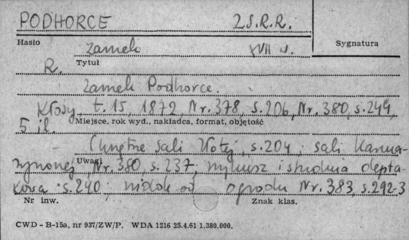 PODHORCE Z.S.R.R.
Hasło zamek XVII w. Sygnatura
R. Tytuł
Zamek Podhorce.
Kłosy t. 15, 1872, Nr. 378, s. 206, Nr. 380, s. 249,
5 il. Miejsce, rok wyd., nakładca, format, objętość
(Wnętrze sali złotej, s. 204; sali karma-
zynowej Nr. 380, s. 237, mykusz i studnia depta-
kowa s. 240; widok od ogrodu Nr. 383, s. 292-3
Uwagi
Nr inw. Znak klas.
CWD - B-15a, nr 937/ZW/P. WDA 1216 25.4.61 1.380.000.